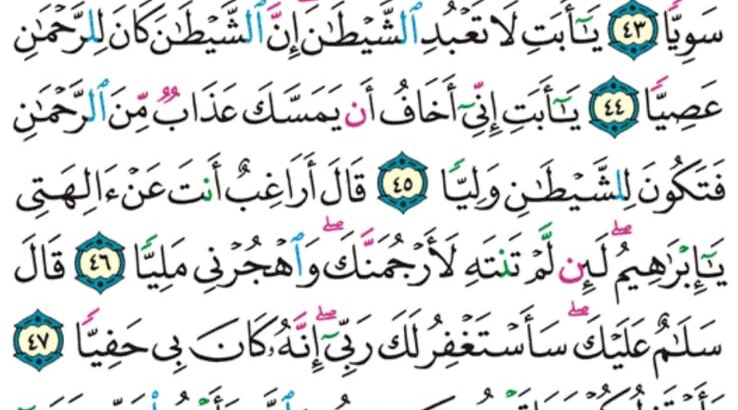 سَوِيًّا ٤٣ يَٰٓأَبَتِ لَا تَعْبُدِ ٱلشَّيْطَٰنَ إِنَّ ٱلشَّيْطَٰنَ كَانَ لِلرَّحْمَٰنِ
عَصِيًّا ٤٤ يَٰٓأَبَتِ إِنِّىٓ أَخَافُ أَن يَمَسَّكَ عَذَابٌ مِّنَ ٱلرَّحْمَٰنِ
فَتَكُونَ لِلشَّيْطَٰنِ وَلِيًّا ٤٥ قَالَ أَرَاغِبٌ أَنتَ عَنْ ءَالِهَتِى
يَٰٓإِبْرَٰهِيمُ ۖ لَئِن لَّمْ تَنتَهِ لَأَرْجُمَنَّكَ ۖ وَٱهْجُرْنِى مَلِيًّا ٤٦ قَالَ
سَلَٰمٌ عَلَيْكَ ۖ سَأَسْتَغْفِرُ لَكَ رَبِّىٓ ۖ إِنَّهُۥ كَانَ بِى حَفِيًّا ٤٧